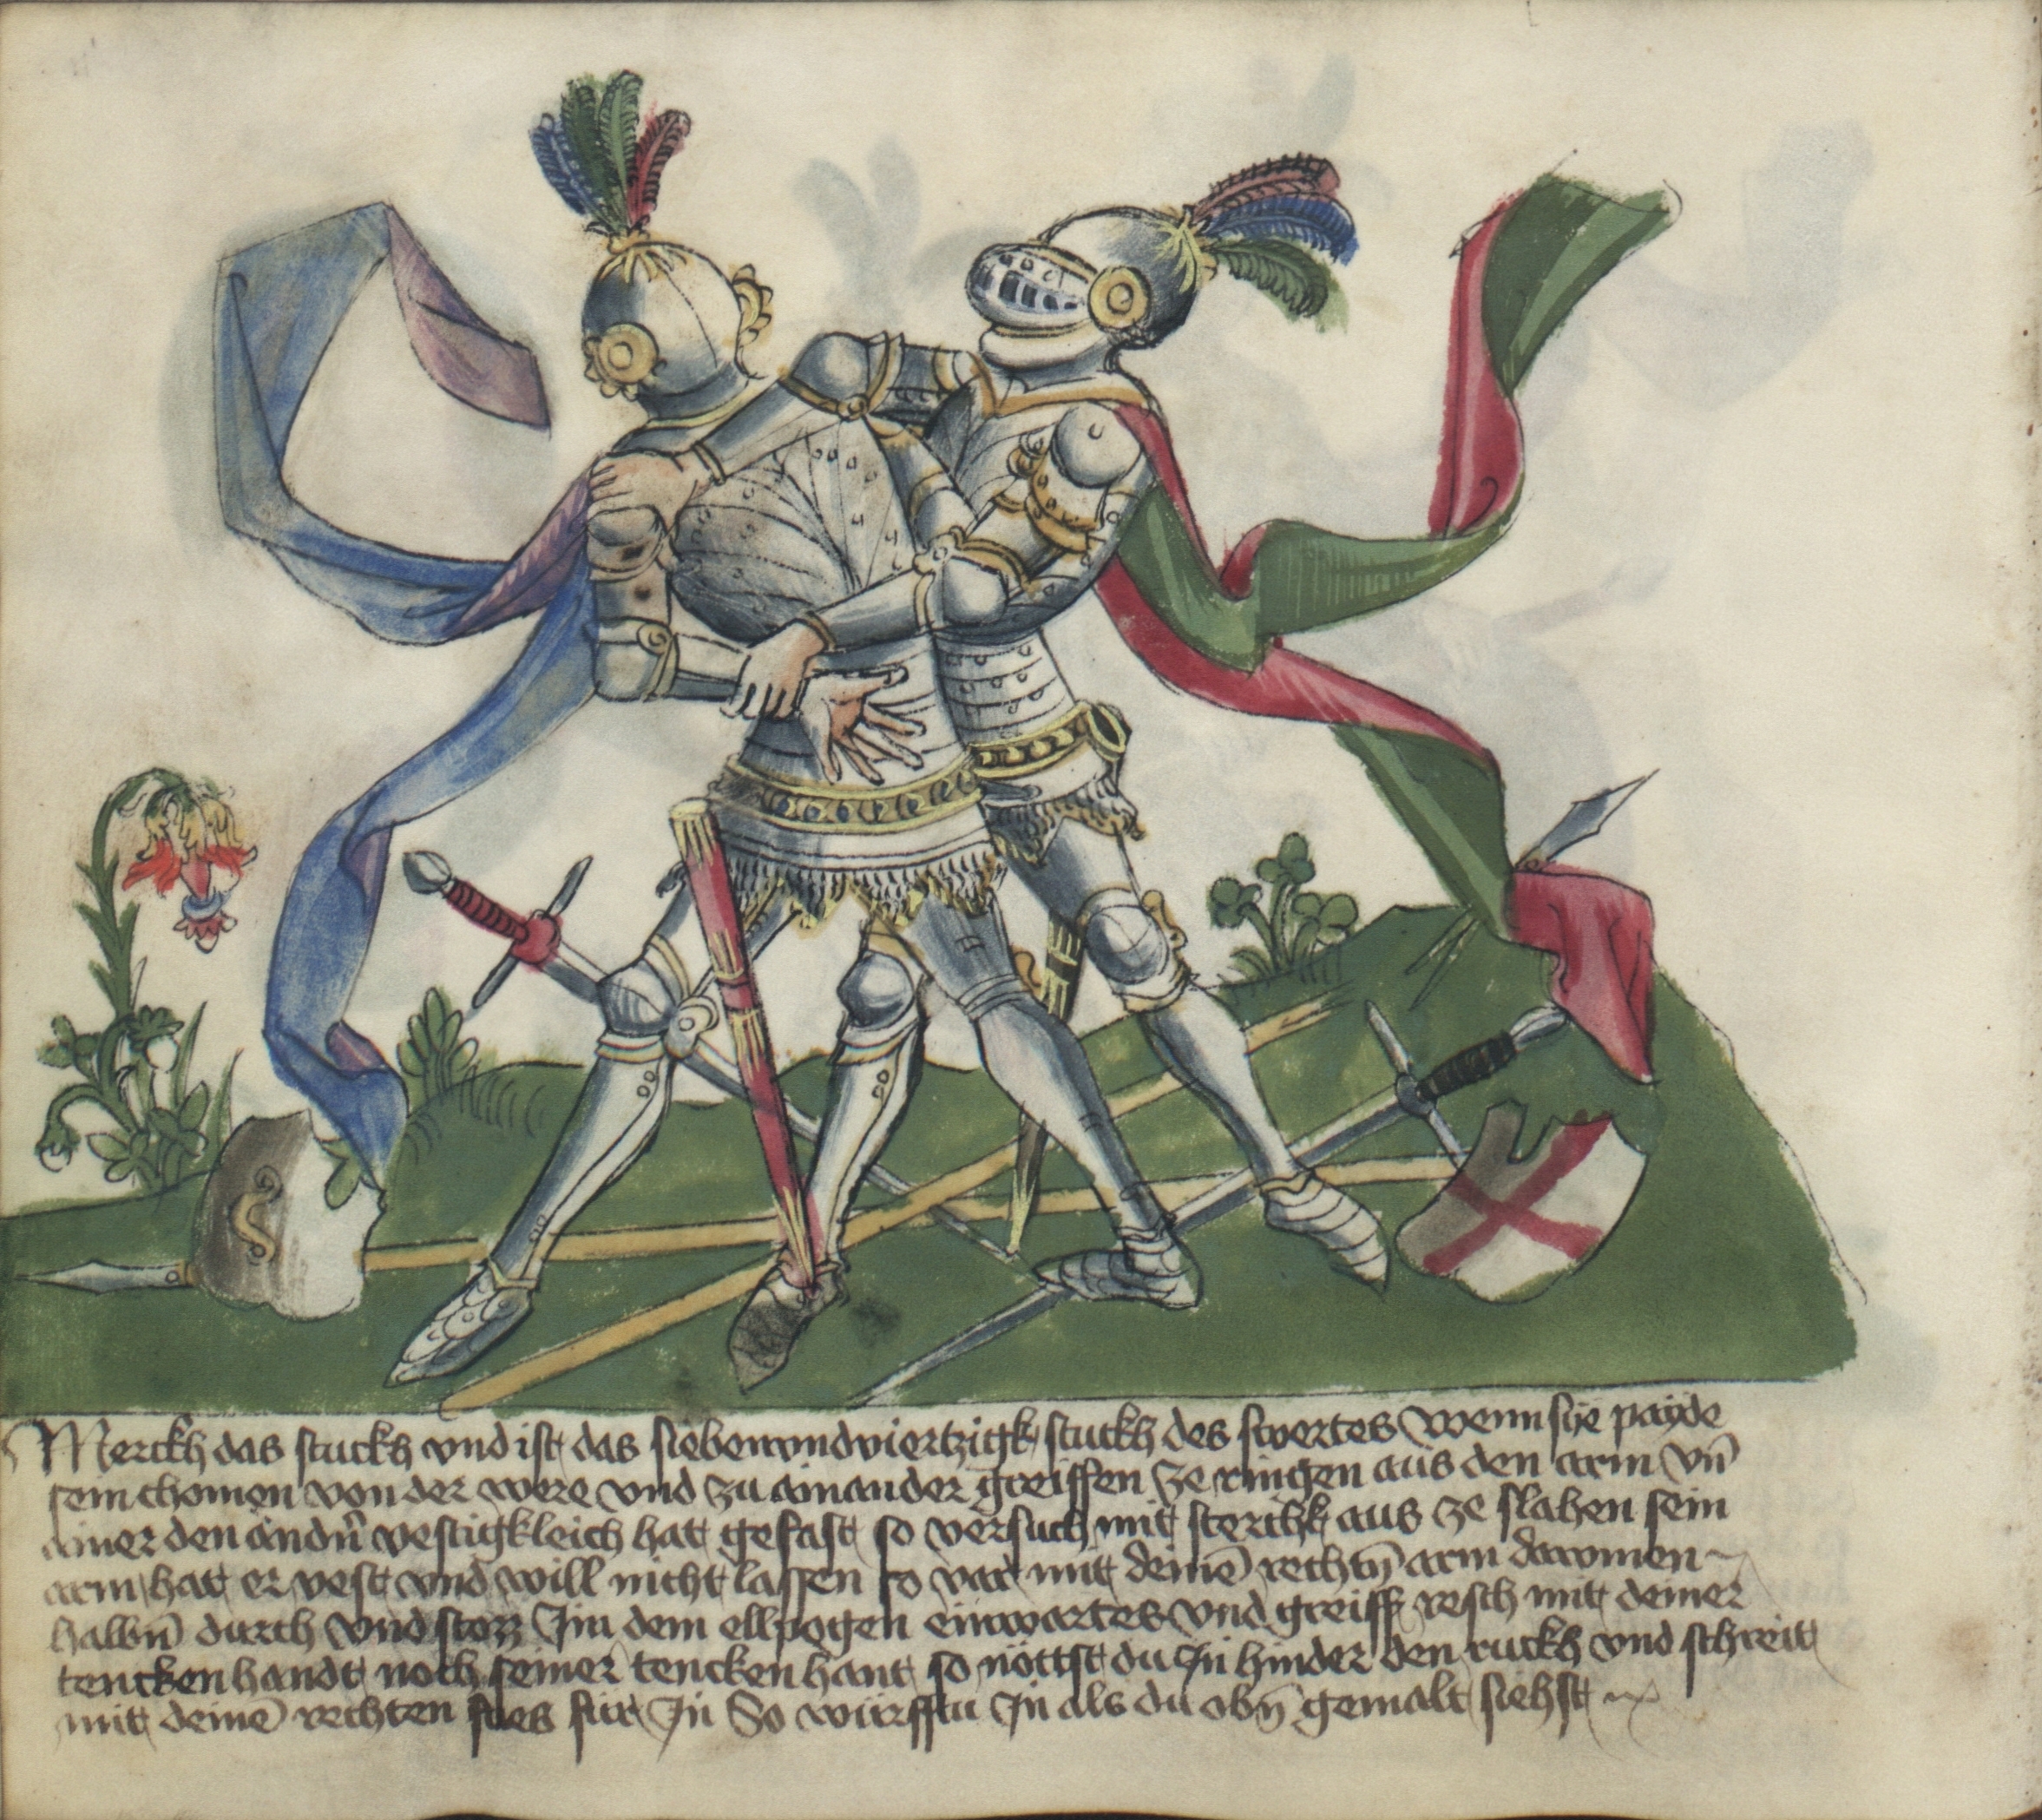 Merckh das stuckh vnd ist das siebenvndviertzigk stuckh des swertes wenn sye payde
sein chomen von der were vnd zu ainander greiffen ze ringen aus den arm vn̄
ainer den andn̄ vestigkleich hat gefast so versuch mit sterchk aus ze slahen sein
arm hat er vest vnd will nicht lassen so var mit deinē rechtn̄ arm
halbn̄ durch vnd stozz Im dem ellpogen einwartes vnd greiff resch mit deiner
tencken handt noch seiner tencken hant so nöttst du In hinder den ruckh vnd schreitt
mit deinē rechten fues für In So würfftu In als du obn̄ gemalt siehst